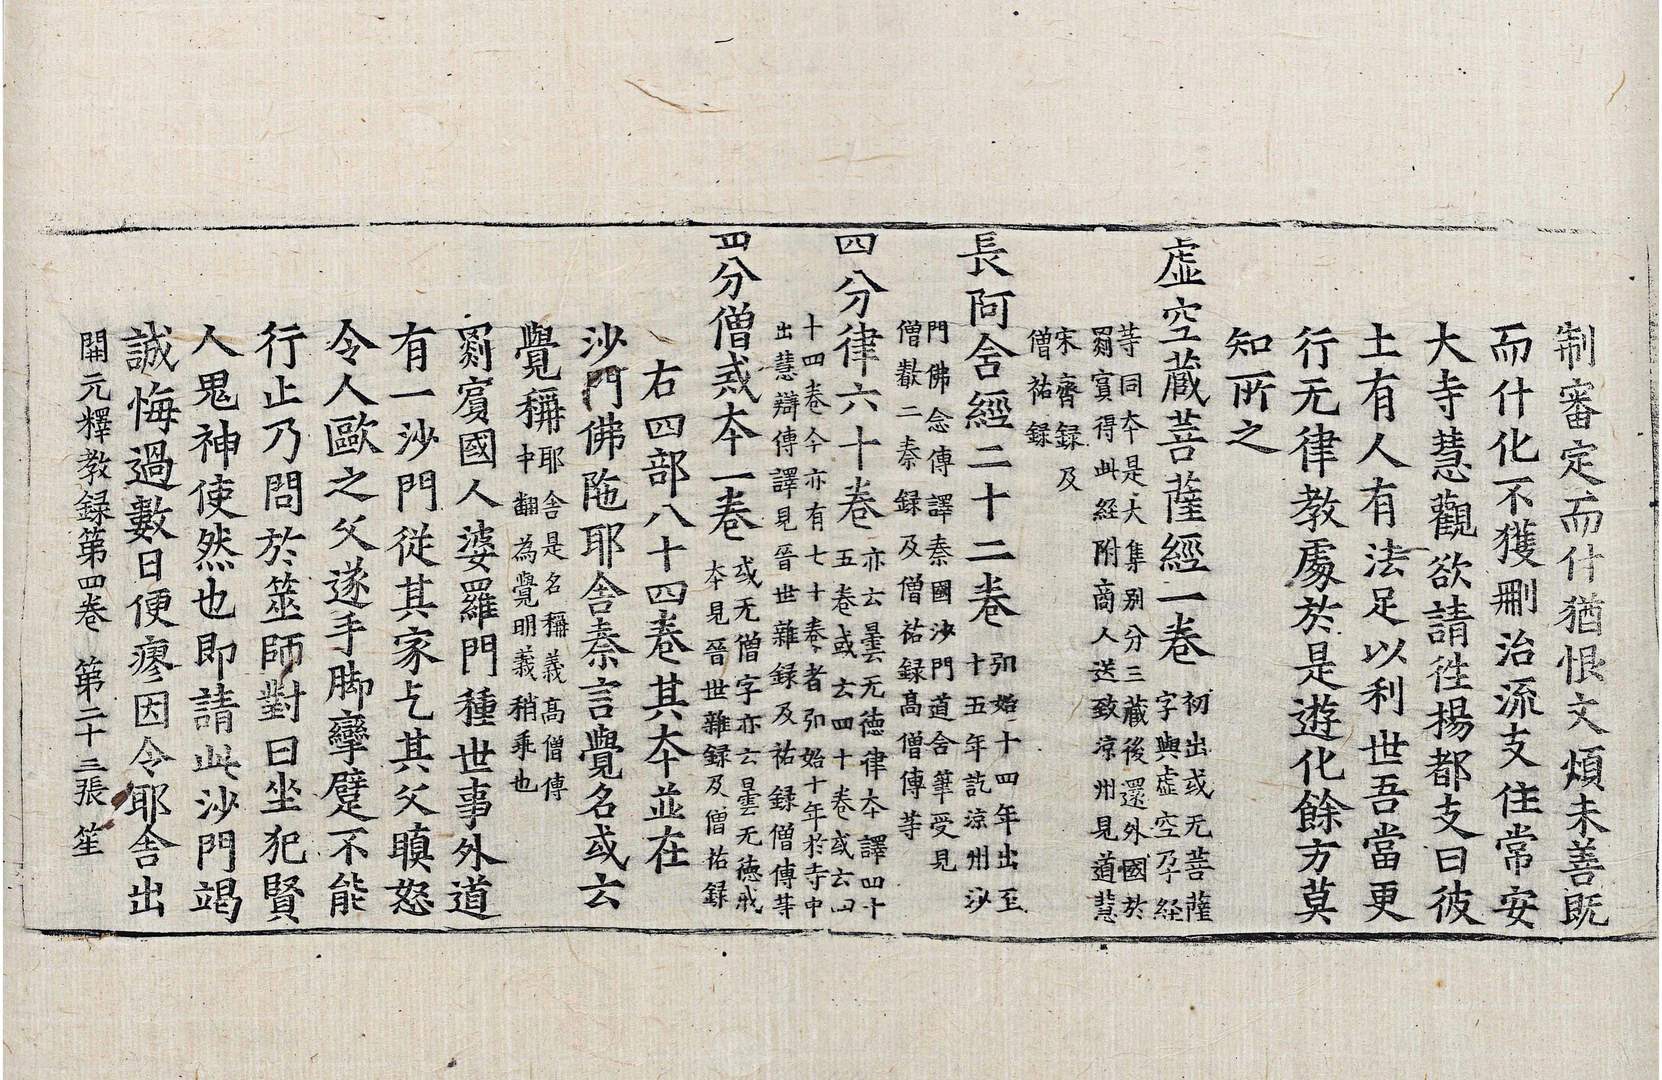 制審定而什猶恨文煩未善既
而什化不獲刪治流支住常安
大寺慧觀欲請徃揚都支曰彼
土有人有法足以利世吾當更
行无律教處於是遊化餘方莫
知所之
虛空藏菩薩經一巻
初出或无菩薩
字與虛空孕経
等同夲是大集别分三藏後還外國於
罽賓得此経附商人送致涼州見道慧
宋齊録及
僧祐録
長阿含經二十二巻
弘始十四年出至
十五年訖涼州沙
門佛念傳譯秦國沙門道含筆受見
僧叡二秦録及僧祐録髙僧傳等
四分律六十巻
亦云曇无德律夲譯四十
五巻或云四十巻或云四
十四巻今亦有七十巻者弘始十年於寺中
出慧辯傳譯見晉世雜録及祐録僧傳等
四分僧戒夲一巻
或无僧字亦云曇无徳戒
夲見晉世雜録及僧祐録
右四部八十四巻其夲並在
沙門佛陁耶舍秦言覺名或云
覺稱
耶舍是名稱義髙僧傳
中翻為覺明義稍乖也
罽賓國人婆羅門種世事外道
有一沙門從其家乞其父瞋怒
令人歐之父遂手脚攣躄不能
行止乃問於筮師對曰坐犯賢
人鬼神使然也即請此沙門竭
誠悔過數日便瘳因令耶舍出
開元釋教録第四巻 第二十三張 笙